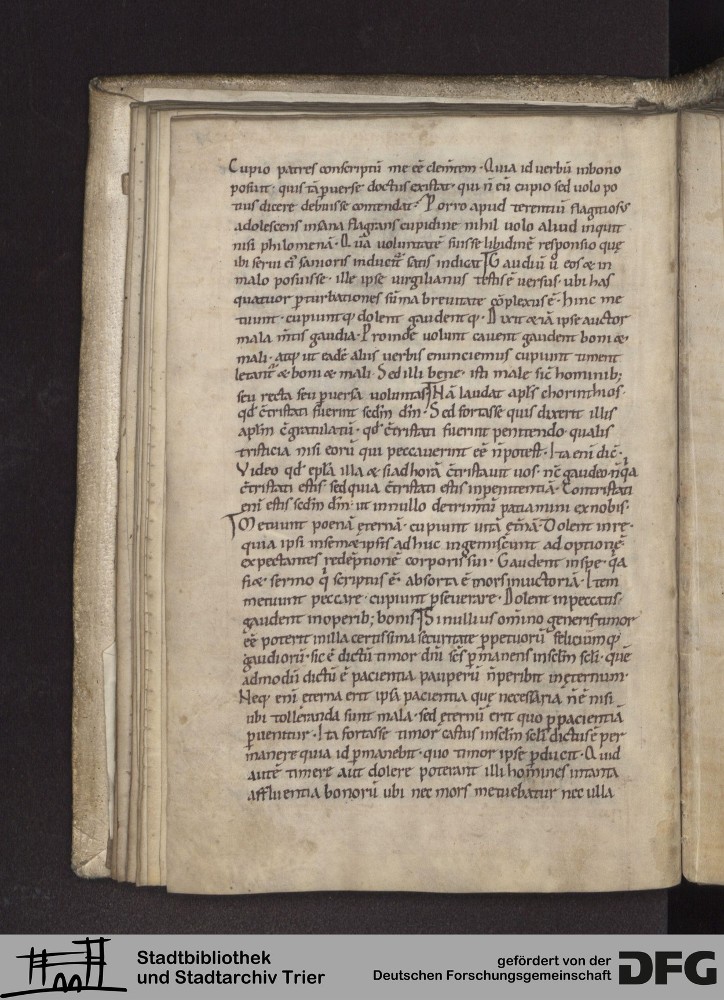 Cupio patres conscripti me cē clemtem· Quia id uerbū inbono
posuit· quis tā puerse doctus existat· qui n̄ eū cupio sed uolo po
tius dicere debuisse contendat· Porro apud terentiū flagitiosꝰ
adolescens insana flagrans cupidine nihil uolo aliud inquit
nisi philomenā· Qua uoluntatē fuisse libidinē responsio quę
ibi serui ei sanioris inducit᷑ satis indicat Gaudiū ū eos & in
malo posuisse· ille ipse uirgilianus testis ē uersus· ubi has
quatuor pturbationes sūma breuitate cōplexus ē· hinc me
tuunt· cupiuntq· dolent gaudentq· Dixit & iā ipse auctor
mala mtis gaudia· Proinde uolunt cauent gaudent boni &
mali· atq ut eadē aliis uerbis enunciemus cupiunt timent
letant᷑ & boni & mali· Sed illi bene· isti male sic hominib;
seu recta seu puersa uoluntas Nā laudat apls chorinthios·
qd c̄tristati fuerint scdm dm̄· Sed fortasse quis dixerit illis
aplm c̄gratulatū· qd c̄tristati fuerint penitendo· qualis
tristicia nisi eorū qui peccauerint eē n̄ potest· Ita eni dic̄·
Video qd epla illa & si ad horā c̄tristauit uos· nc̄ gaudeo· n̄ qa
c̄tristati estis· sed quia c̄tristati estis inpenitentiā· Contristati
eni estis scdm dm̄· ut innullo detrimtū patiamini ex nobis·
Metuunt poenā eternā· cupiunt uitā etnā· Dolent in re·
quia ipsi insem& ipsis adhuc ingemiscunt adoptionē
expectantes redeptionē corporis sui· Gaudent inspe· qa
fi& sermo q scriptus ē· absorta ē mors inuictoriā· Item
metuunt peccare· cupiunt pseuerare· Dolent inpeccatis·
gaudent inoperib; bonis Si nullius omino generis timor
eē poterit in illa certissima securitate ppetuorū feliciumq
gaudiorū· sic ē dictū timor dni scs pmanens inselm scli· que
admodū dictū ē pacientia pauperū n̄ peribit ineternum·
Neq eni eterna erit ipsa pacientia quę necessaria n̄ ē nisi
ubi tolleranda sunt mala· sed eternū erit quo p pacientiā
puenitur· Ita fortasse timor castus inselm scli dictus ē per
manere quia id pmanebit· quo timor ipse pducit· Quid
autē timere aut dolere poterant illi homines intanta
affluentia bonorū ubi nec mors metuebatur nec ulla
Stadtbibliothek
und Stadtarchiv Trier
gefördert von der
Deutschen Forschungsgemeinschaft
DFG